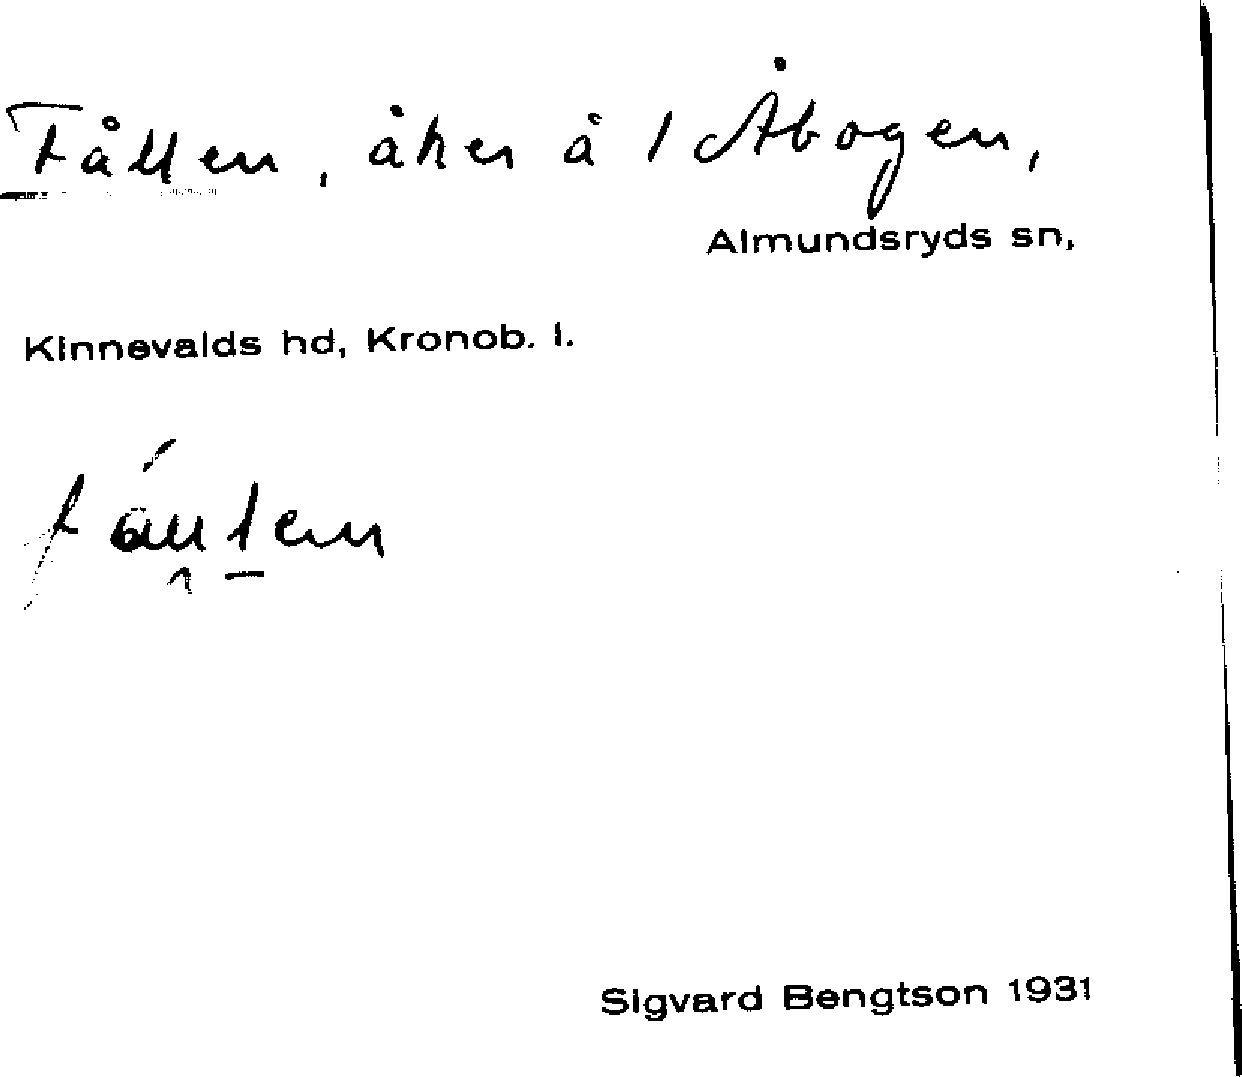 Fållen, åker å 1 Åbogen,
Almundsryds sn,
Kinnevalds hd, Kronob. l.
Sigvard Bengtson 1931